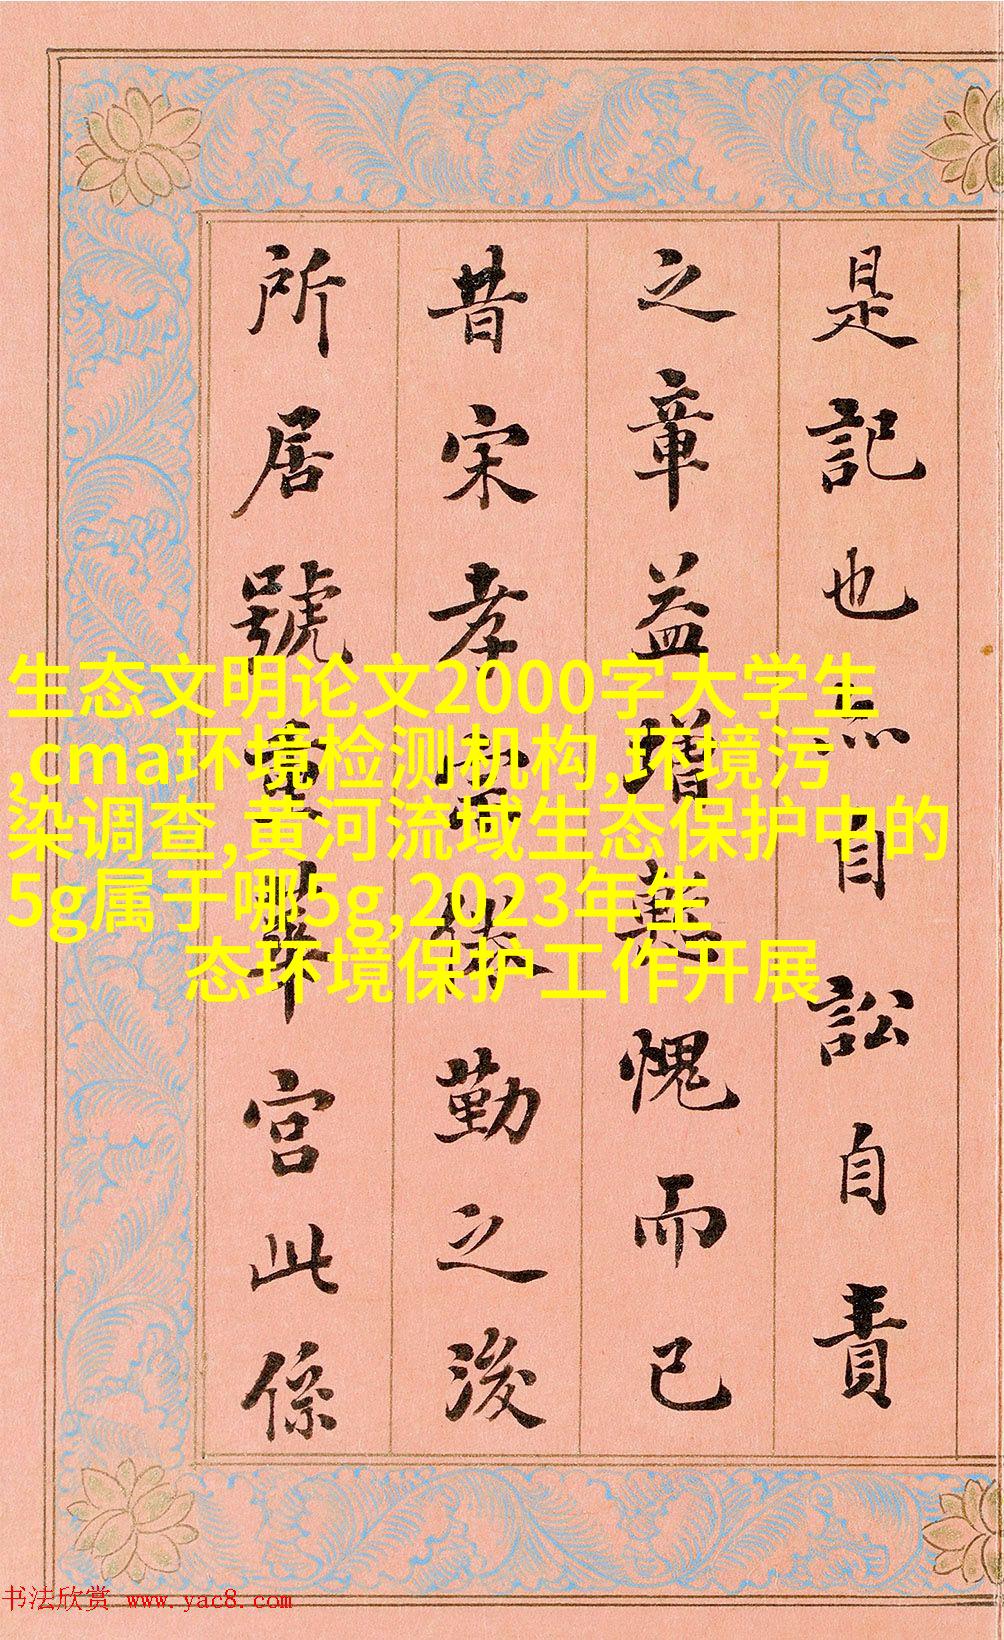 是記也自訟自責
之章益增慙愧而已
昔宋孝宗倦勤之後
所居號重華宮此係
生态文明论文2000字大学生
,cma环境检测机构,环境污
染调查,黄河流域生态保护中的
5g属于哪5g,2023年生
态环境保护工作开展
书法欣赏 www.yac8.com